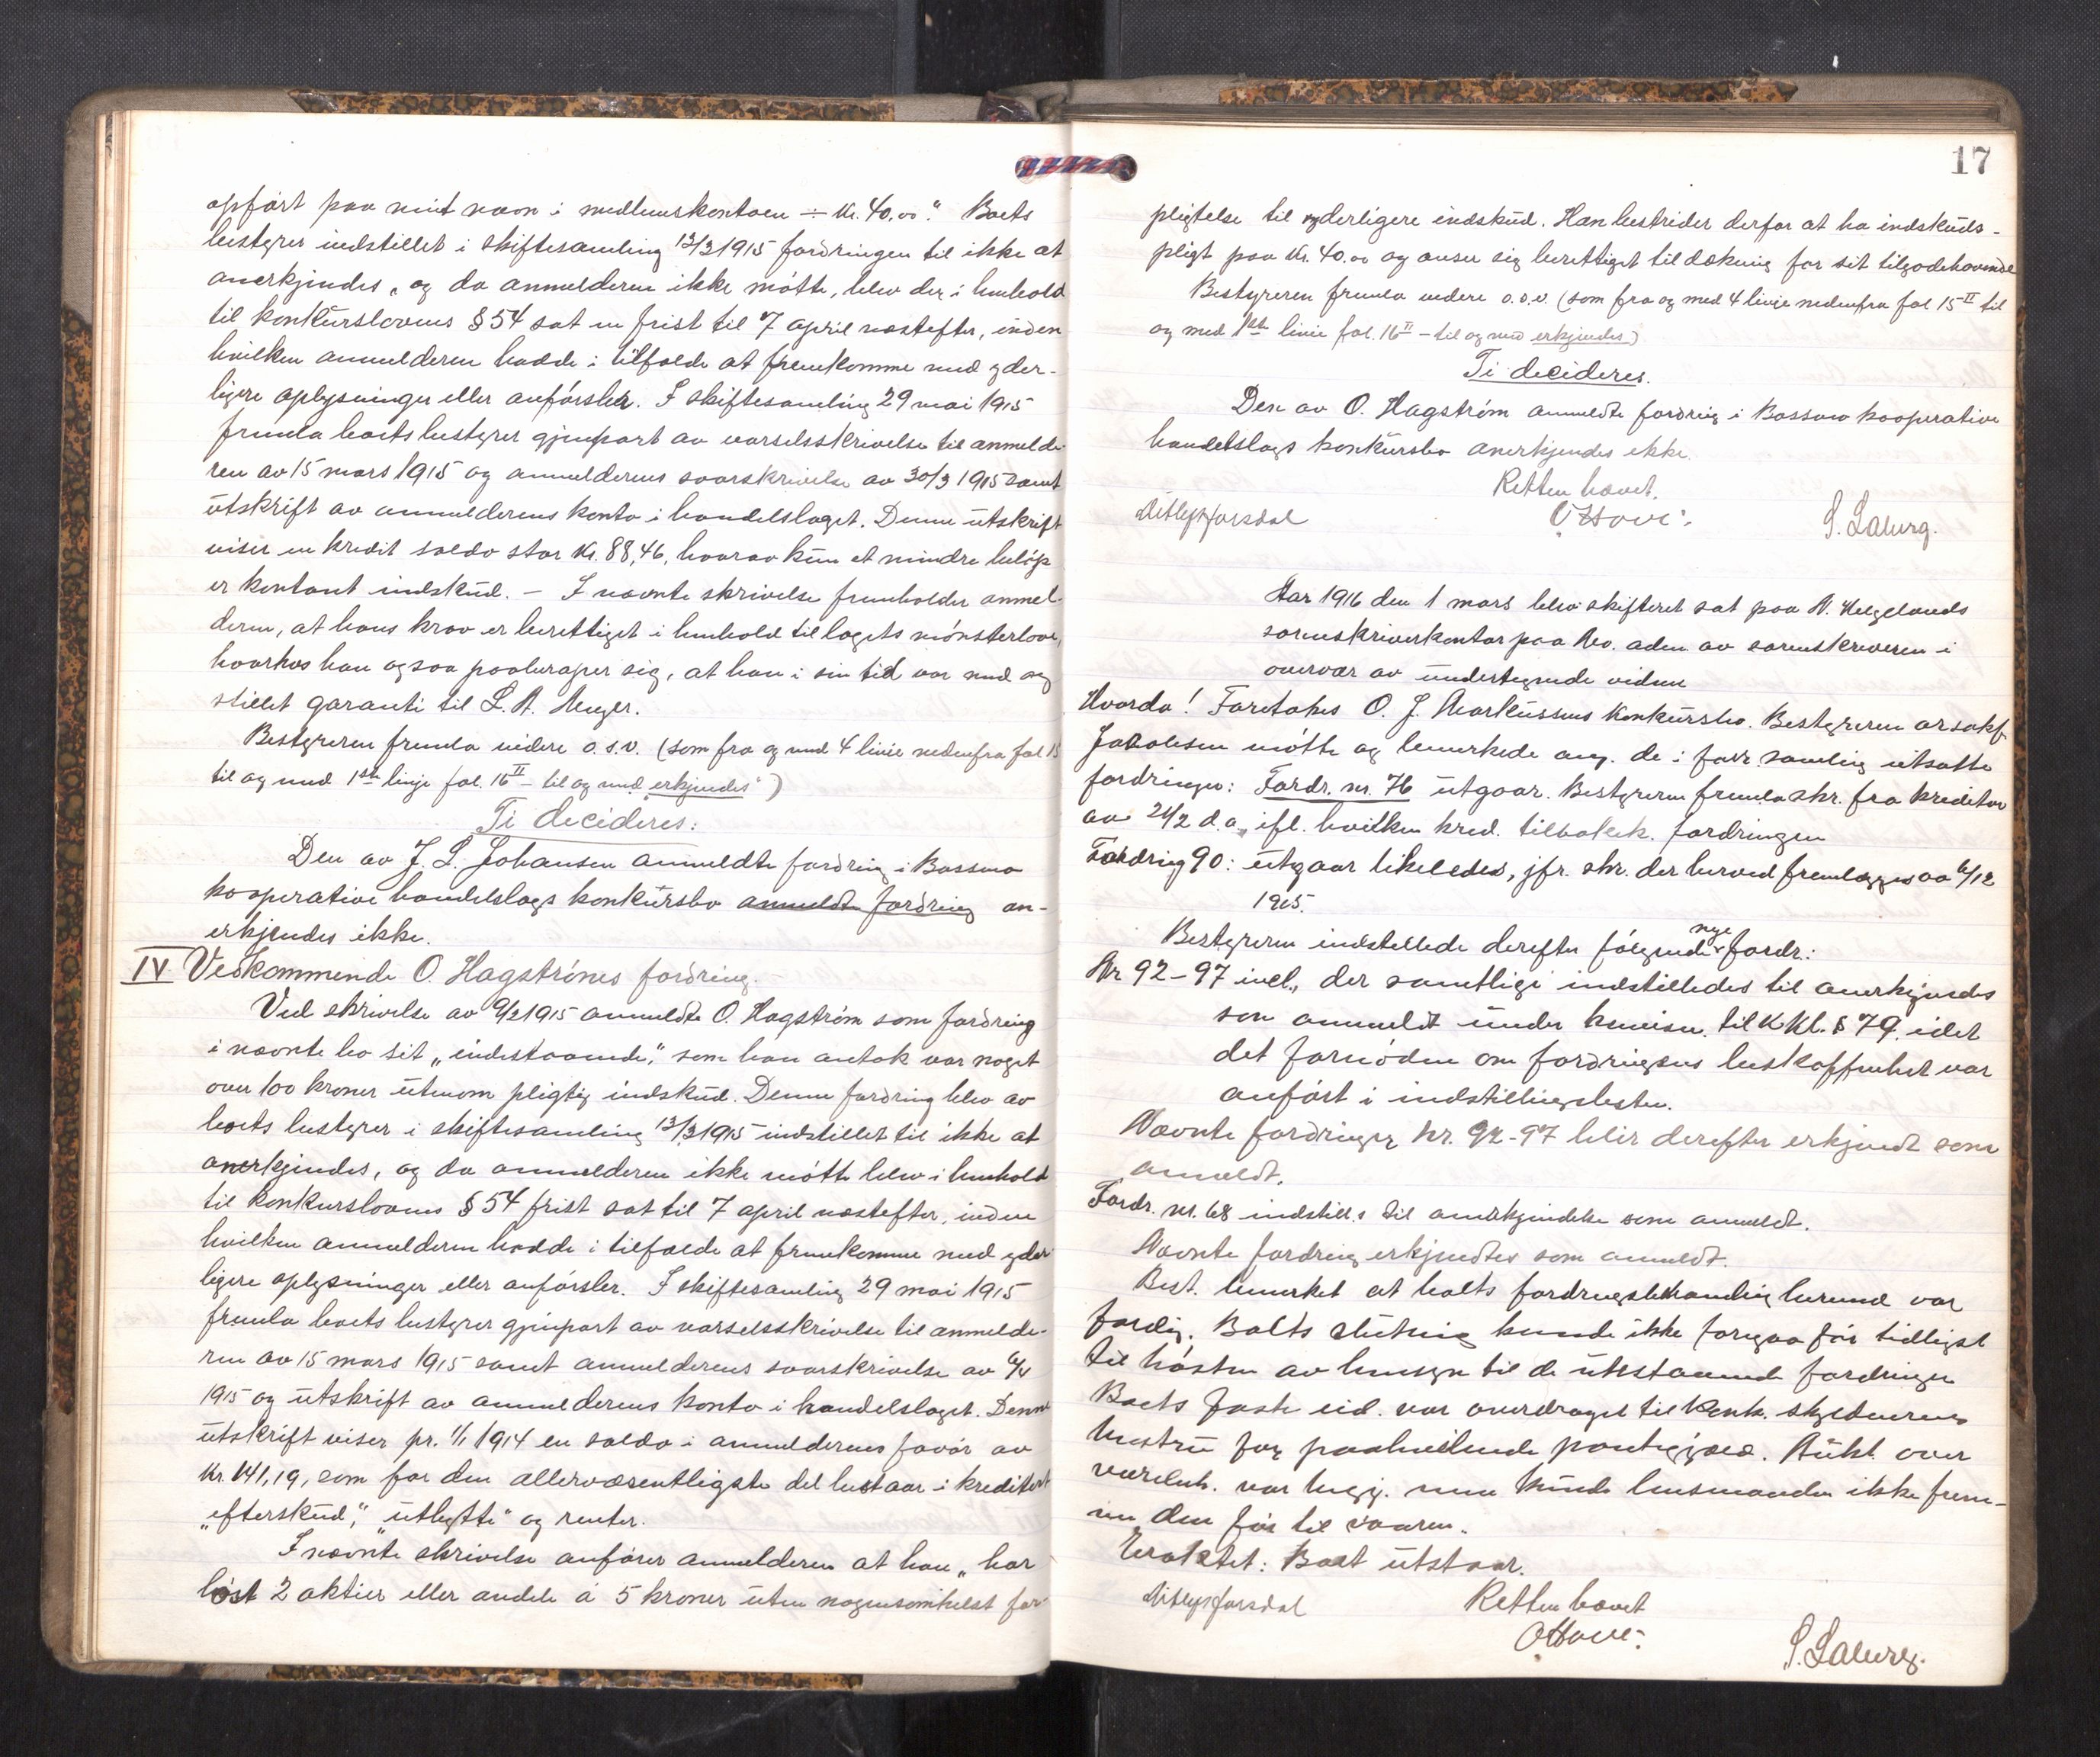 opført paa mit navn i medlemskontoen ÷ kr. 40.00." Boets
bestyrer indstillet i skiftesamling 12/3 1915 fordringen til ikke at
anerkjendes, og da anmelderen ikke møtte, blev der i henhold
til konkurslovens § 54 sat en frist til 7 april næstefter, inden
hvilken anmelderen hadde i tilfælde at fremkomme med yder-
ligere oplysninger eller anførsler. I skiftesamling 29 mai 1915
fremla boets bestyrer gjenpart av varselsskrivelse til anmelde-
ren av 15 mars 1915 og anmelderens svarskrivelse av 30/3 1915 samt
utskrift av anmelderens konto i handelslaget. Denne utskrift
viser en kredit saldo stor kr. 88,46, hvorav kun et mindre beløp
er kontant indskud. - I nævnte skrivelse fremholder anmel-
deren, at hans krav er berettiget i henhold til lagets mønsterlove,
hvorhos han ogsaa paaberaaper sig, at han i sin tid var med og
stillet garanti til L. A. Meyer.
Bestyreren fremla videre o.s.v. (som fra og med 4 linje nedenfra fol 15
til og med 1ste linje fol. 16 II - til og med "erkjendes")
Ti decideres:
Den av J. L. Johansen anmeldte fordring i Bossmo
kooperative handelslags konkursbo anmeldte fordring an-
erkjendes ikke.
IV Vedkommende O. Hagstrøms fordring.
Ved skrivelse av 9/2 1915 anmeldte O. Hagstrøm som fordring
i nævnte bo sit "indestaaende", som han antok var noget
over 100 kroner utenom pligtig indskud. Denne fordring blev av
boets bestyrer i skiftesamling 12/3 1915 indstillet til ikke at
anerkjendes, og da anmelderen ikke møtte blev i henhold
til konkurslovens § 54 frist sat til 7 april næstefter, inden
hvilken anmelderen hadde i tilfælde at fremkomme med yder-
ligere oplysninger eller anførsler. I skiftesamling 29 mai 1915
fremla boets bestyrer gjenpart av varselsskrivelse til anmelde-
ren av 15 mars 1915 samt anmelderens svarskrivelse av 6/4
1915 og utskrift av anmelderens konto i handelslaget. Denne
utskrift viser pr. 1/1 1914 en saldo i anmelderens favør av
kr. 141,19, som for den allervæsentligste del bestaar i kreditert
"efterskud", "utbytte" og renter.
I nævnte skrivelse anfører anmelderen at han "har
løst 2 aktier eller andele á 5 kroner uten nogensomhelst for-
17
pligtelse til yderligere indskud. Han bestrider derfor at ha indskuds-
pligt paa kr. 40.00 og anser sig berettiget til dækning for sit tilgodehavende
Bestyreren fremla videre o.s.v. (som fra og med 4 linje nedenfra fol 15 II til
og med 1ste linie fol. 16 II - til og med erkjendes)
Ti decideres.
Den av O. Hagstrøm anmeldte fordring i Bossmo kooperative
handelslags konkursbo anerkjendes ikke.
Retten hævet.
S. Laberg.
Aar 1916 den 1 mars blev skifteret sat paa N. Helgelands
sorenskriverkontor paa Mo. adm. av sorenskriveren i
overvær av undertegnede vidner
Hvorda! Foretokes O. J. Markussens konkursbo. Bestyreren orsakf.
Jakobsen møtte og bemerkede ang. de i forr. samling utsatte
fordringer: Fordr. nr. 76 utgaar. Bestyreren fremla skr. fra kreditor
av 21/2 d.a., ifl. hvilken kred. tilbakek. fordringen
Fordring 90: utgaar likeledes, jfr. skr. der herved fremlægges av 6/12
1915.
Bestyreren indstillede derefter følgende nye fordr.:
Nr 92-97 incl., der samtlige indstilledes til anerkjendes
som anmeldt under henvisn. til KKl. § 79. idet
det fornødne om fordringens beskaffenhet var
anført i indstillingslisten.
Nævnte fordringer nr. 92-97 blir derefter erkjendt som
anmeldt.
Fordr. nr. 68 indstill.s til anerkjendelse som anmeldt.
Nævnte fordring erkjendtes som anmeldt.
Best. bemerket at boets fordringsbehandling herved var
færdig. Boets slutning kunde ikke foregaa før tidligst
til høsten av hensyn til de utestaaende fordringer
Boets faste eid. var overdraget til konk. skyldnerens
hustru for paahvilende pantegjæld. Aukt. over
varebeh. var begj. men kunde lensmanden ikke frem-
me den før til vaaren.
Eraktet: Boet utstaar.
Retten hævet
S. Laberg.